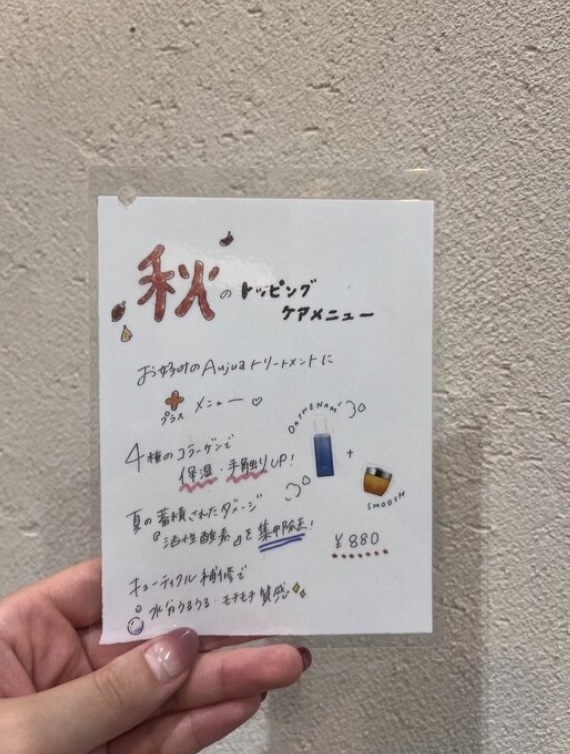 秋のトッピング
ケアメニュー
お好みのAujuaトリートメントに
プラス メニュー♡
4種のコラーゲンで
保湿・手触りUP!
夏の蓄積されたダメージ
『活性酸素』を集中除去!
キューティクル補修で
水分うるうる・モチモチ質感
+
SMOOTH
¥880